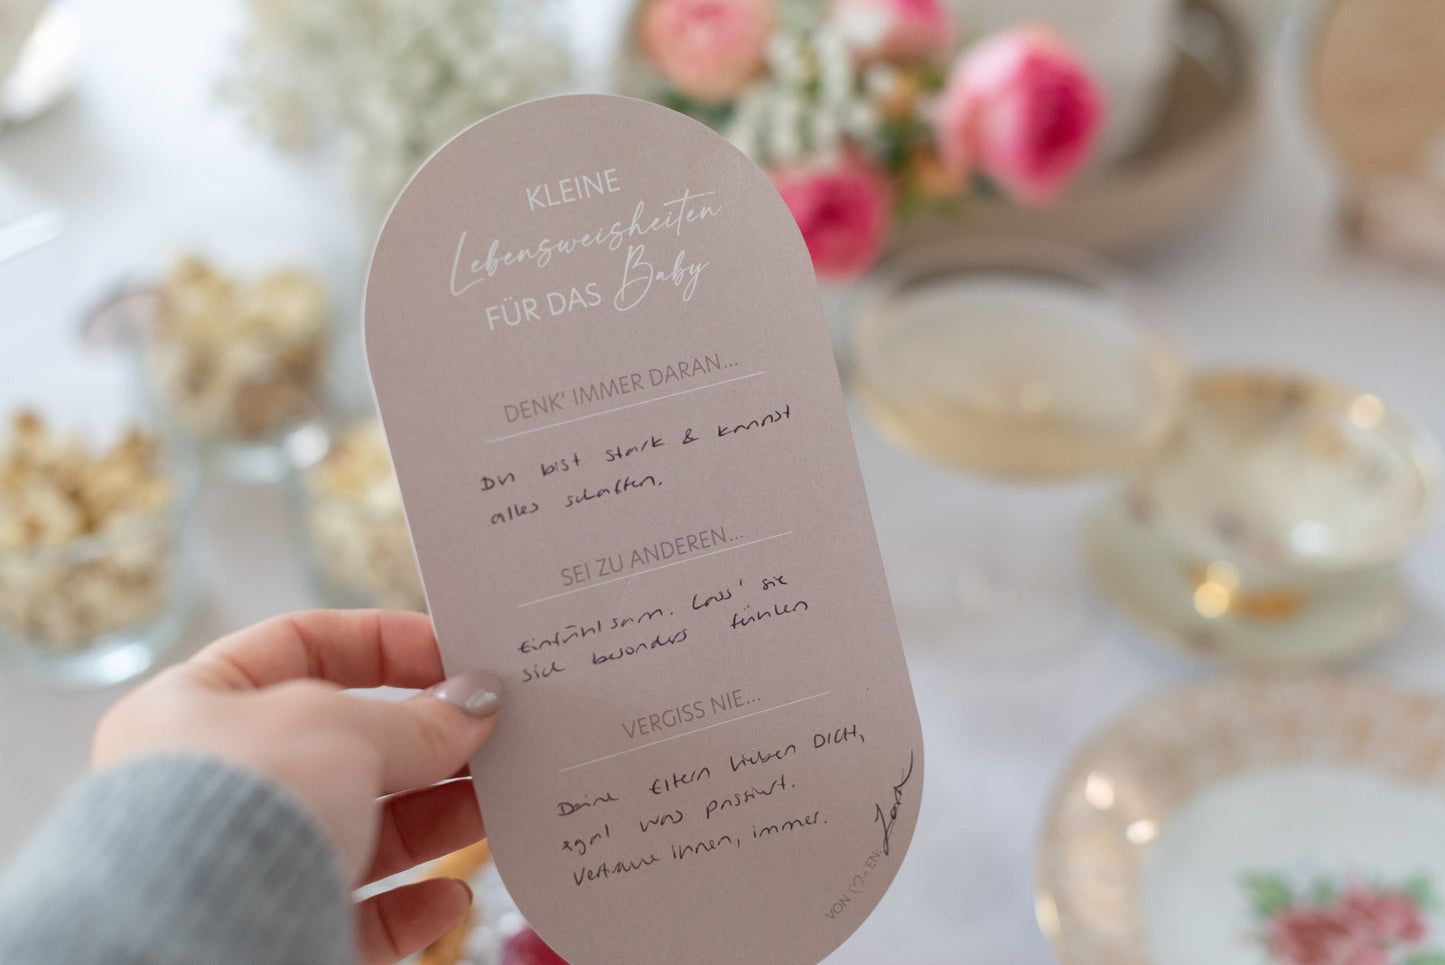 KLEINE
Lebensweisheiten
FÜR DAS Baby
DENK' IMMER DARAN...
Du bist stark & kannst
alles schaffen.
SEI ZU ANDEREN...
Einfühlsam. Lass' sie
sich besonders fühlen
VERGISS NIE...
Deine Eltern lieben DICH,
egal was passiert.
Vertraue ihnen, immer.
VON ♡-EN: